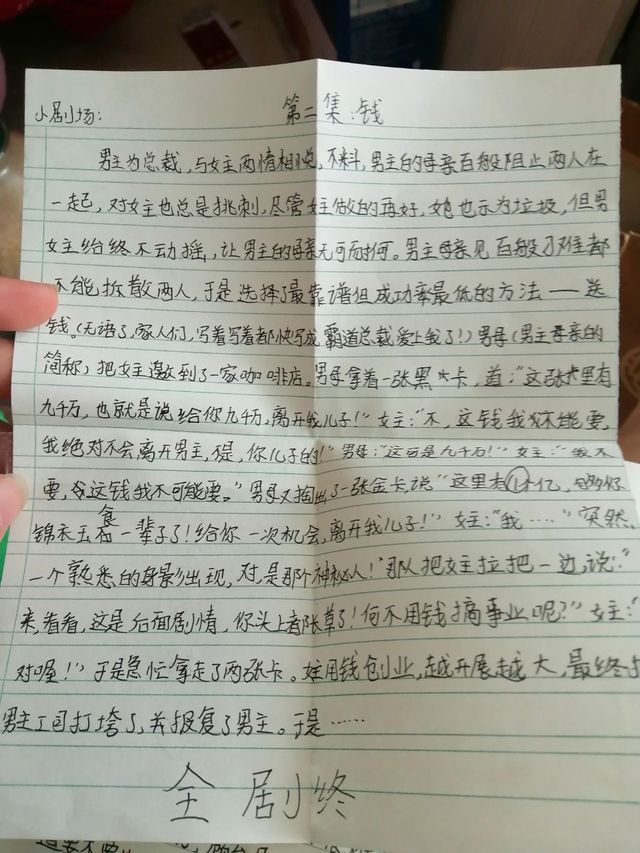 小剧场: 第二集:钱
男主为总裁,与女主两情相悦,不料,男主的母亲百般阻止两人在
一起,对女主也总是挑刺,尽管女主做的再好,她也示为垃圾,但男
女主始终不动摇,让男主的母亲无可耐何。男主母亲见百般刁难都
不能拆散两人,于是选择了最靠谱但成功率最低的方法——送
钱。(无语了,家人们,写着写着都快写成霸道总裁爱上我了!)男母(男主母亲的
简称),把女主邀到了一家咖啡店。男母拿着一张黑卡,道:“这张卡里有
九千万,也就是说给你九千万,离开我儿子!”女主:“不,这钱我不能要,
我绝对不会离开男主,不是,你儿子的!”男母:“这可是九千万!”女主:“我不
要,这钱我不可能要。”男母又掏出了一张金卡说“这里有1个亿,够你
锦衣玉食一辈子了!给你一次机会,离开我儿子!”女主:“我……”突然,
一个熟悉的身影出现,对,是那个神秘人!那人把女主拉把一边,说:“
来,看看,这是后面剧情,你头上都长草了!何不用钱搞事业呢?”女主:“
对喔!”于是急忙拿走了两张卡。女主用钱创业,越开展越大,最终
男主公司打垮了,并报复了男主。于是……
全剧终